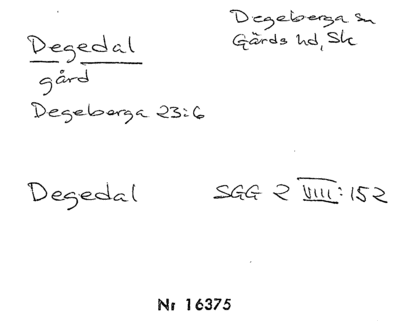 Degeberga sn
Gärds hd, Sk
Degedal
gård
Degeberga 23:6
Degedal SGG 2 VIII:152
Nr 16375